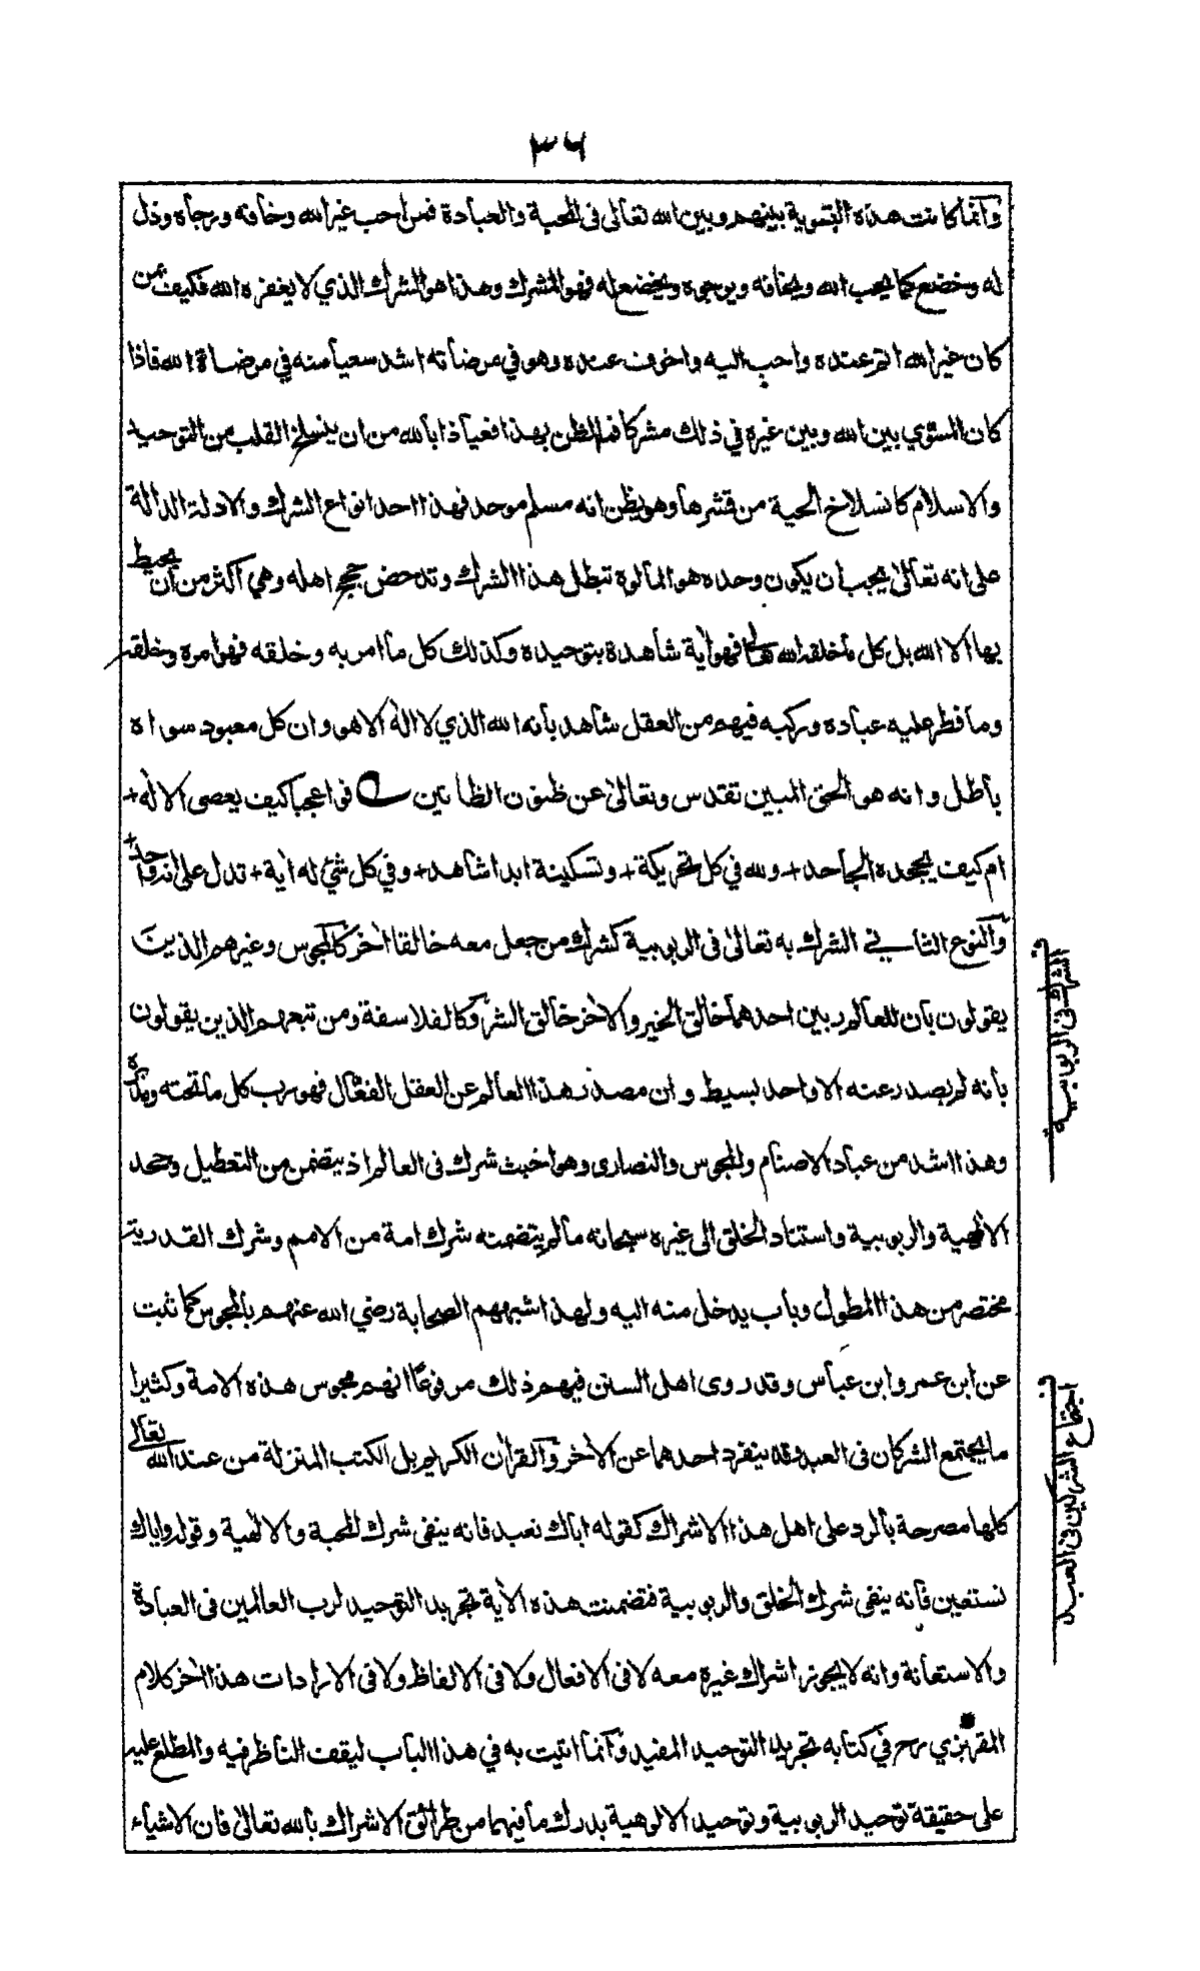 ٣٦
وانما كانت هذه التسوية بينهم وبين الله تعالى فى المحبة والعبادة فمن احب غير الله وخافه ورجاه وذل
له وخضع كما يحب الله ويخافه ويرجوه ويخضع له فهو المشرك وهذا هو الشرك الذي لا يغفره الله فكيف بمن
كان غير الله اثر عنده واحب اليه واخوف عنده وهو في مرضاته اشد سعيا منه في مرضاة الله فاذا
كان المسوي بين الله وبين غيره في ذلك مشركا فما الظن بهذا فعياذا بالله من ان ينسلخ القلب من التوحيد
والاسلام كانسلاخ الحية من قشرها وهو يظن انه مسلم موحد فهذا احد انواع الشرك والادلة الدالة
على انه تعالى يجب ان يكون وحده هو المألوه تبطل هذا الشرك وتدحض حجج اهله وهي اكثر من ان يحيط
بها الا الله بل كل ما خلقه الله تعالى فهو اٰية شاهدة بتوحيده وكذلك كل ما امر به وخلقه فهو امره وخلقه
وما فطر عليه عباده وركبه فيهم من العقل شاهد بانه الله الذي لا اله الا هو وان كل معبود سواه
باطل وانه هو الحق المبين تقدس وتعالى عن ظنون الظانين فوا عجبا كيف يعصى الاله +
ام كيف يجحده الجاحد + ولله في كل تحريكة + وتسكينة ابدا شاهد + وفي كل شئ له اٰية + تدل على انه واحد +
والنوع الثاني الشرك به تعالى فى الربوبية كشرك من جعل معه خالقا اٰخر كالمجوس وغيرهم الذين
يقولون بان للعالم ربين احدهما خالق الخير والاٰخر خالق الشر وكالفلاسفة ومن تبعهم الذين يقولون
بانه لم يصدر عنه الا واحد بسيط وان مصدر هذا العالم عن العقل الفعال فهو رب كل ما تحته ومدبره
وهذا اشد من عباد الاصنام والمجوس والنصارى وهو اخبث شرك فى العالم اذ يتضمن من التعطيل وجحد
الالٰهية والربوبية واستناد الخلق الى غيره سبحانه ما لم يتضمنه شرك امة من الامم وشرك القدرية
مختصر من هذا المطول وباب يدخل منه اليه ولهذا شبههم الصحابة رضي الله عنهم بالمجوس كما ثبت
عن ابن عمر وابن عباس وقد روى اهل السنن فيهم ذلك مرفوعا انهم مجوس هذه الامة وكثيرا
ما يجتمع الشركان فى العبد وقد ينفرد احدهما عن الاٰخر والقراٰن الكريم بل الكتب المنزلة من عند الله تعالى
كلها مصرحة بالرد على اهل هذا الاشراك كقوله اياك نعبد فانه ينفى شرك المحبة والالٰهية وقوله واياك
نستعين فانه ينفى شرك الخلق والربوبية فتضمنت هذه الاٰية تجريد التوحيد لرب العالمين فى العبادة
والاستعانة وانه لا يجوز اشراك غيره معه لا فى الافعال ولا فى الالفاظ ولا فى الارادات هذا اٰخر كلام
المقريزي رح في كتابه تجريد التوحيد المفيد وانما اتيت به في هذا الباب ليقف الناظر فيه والمطلع عليه
على حقيقة توحيد الربوبية وتوحيد الالوهية بدرك ما فيهما من طرائق الاشراك بالله تعالى فان الاشياء
الشرك في الربوبية
اجتماع الشركين فى العبد